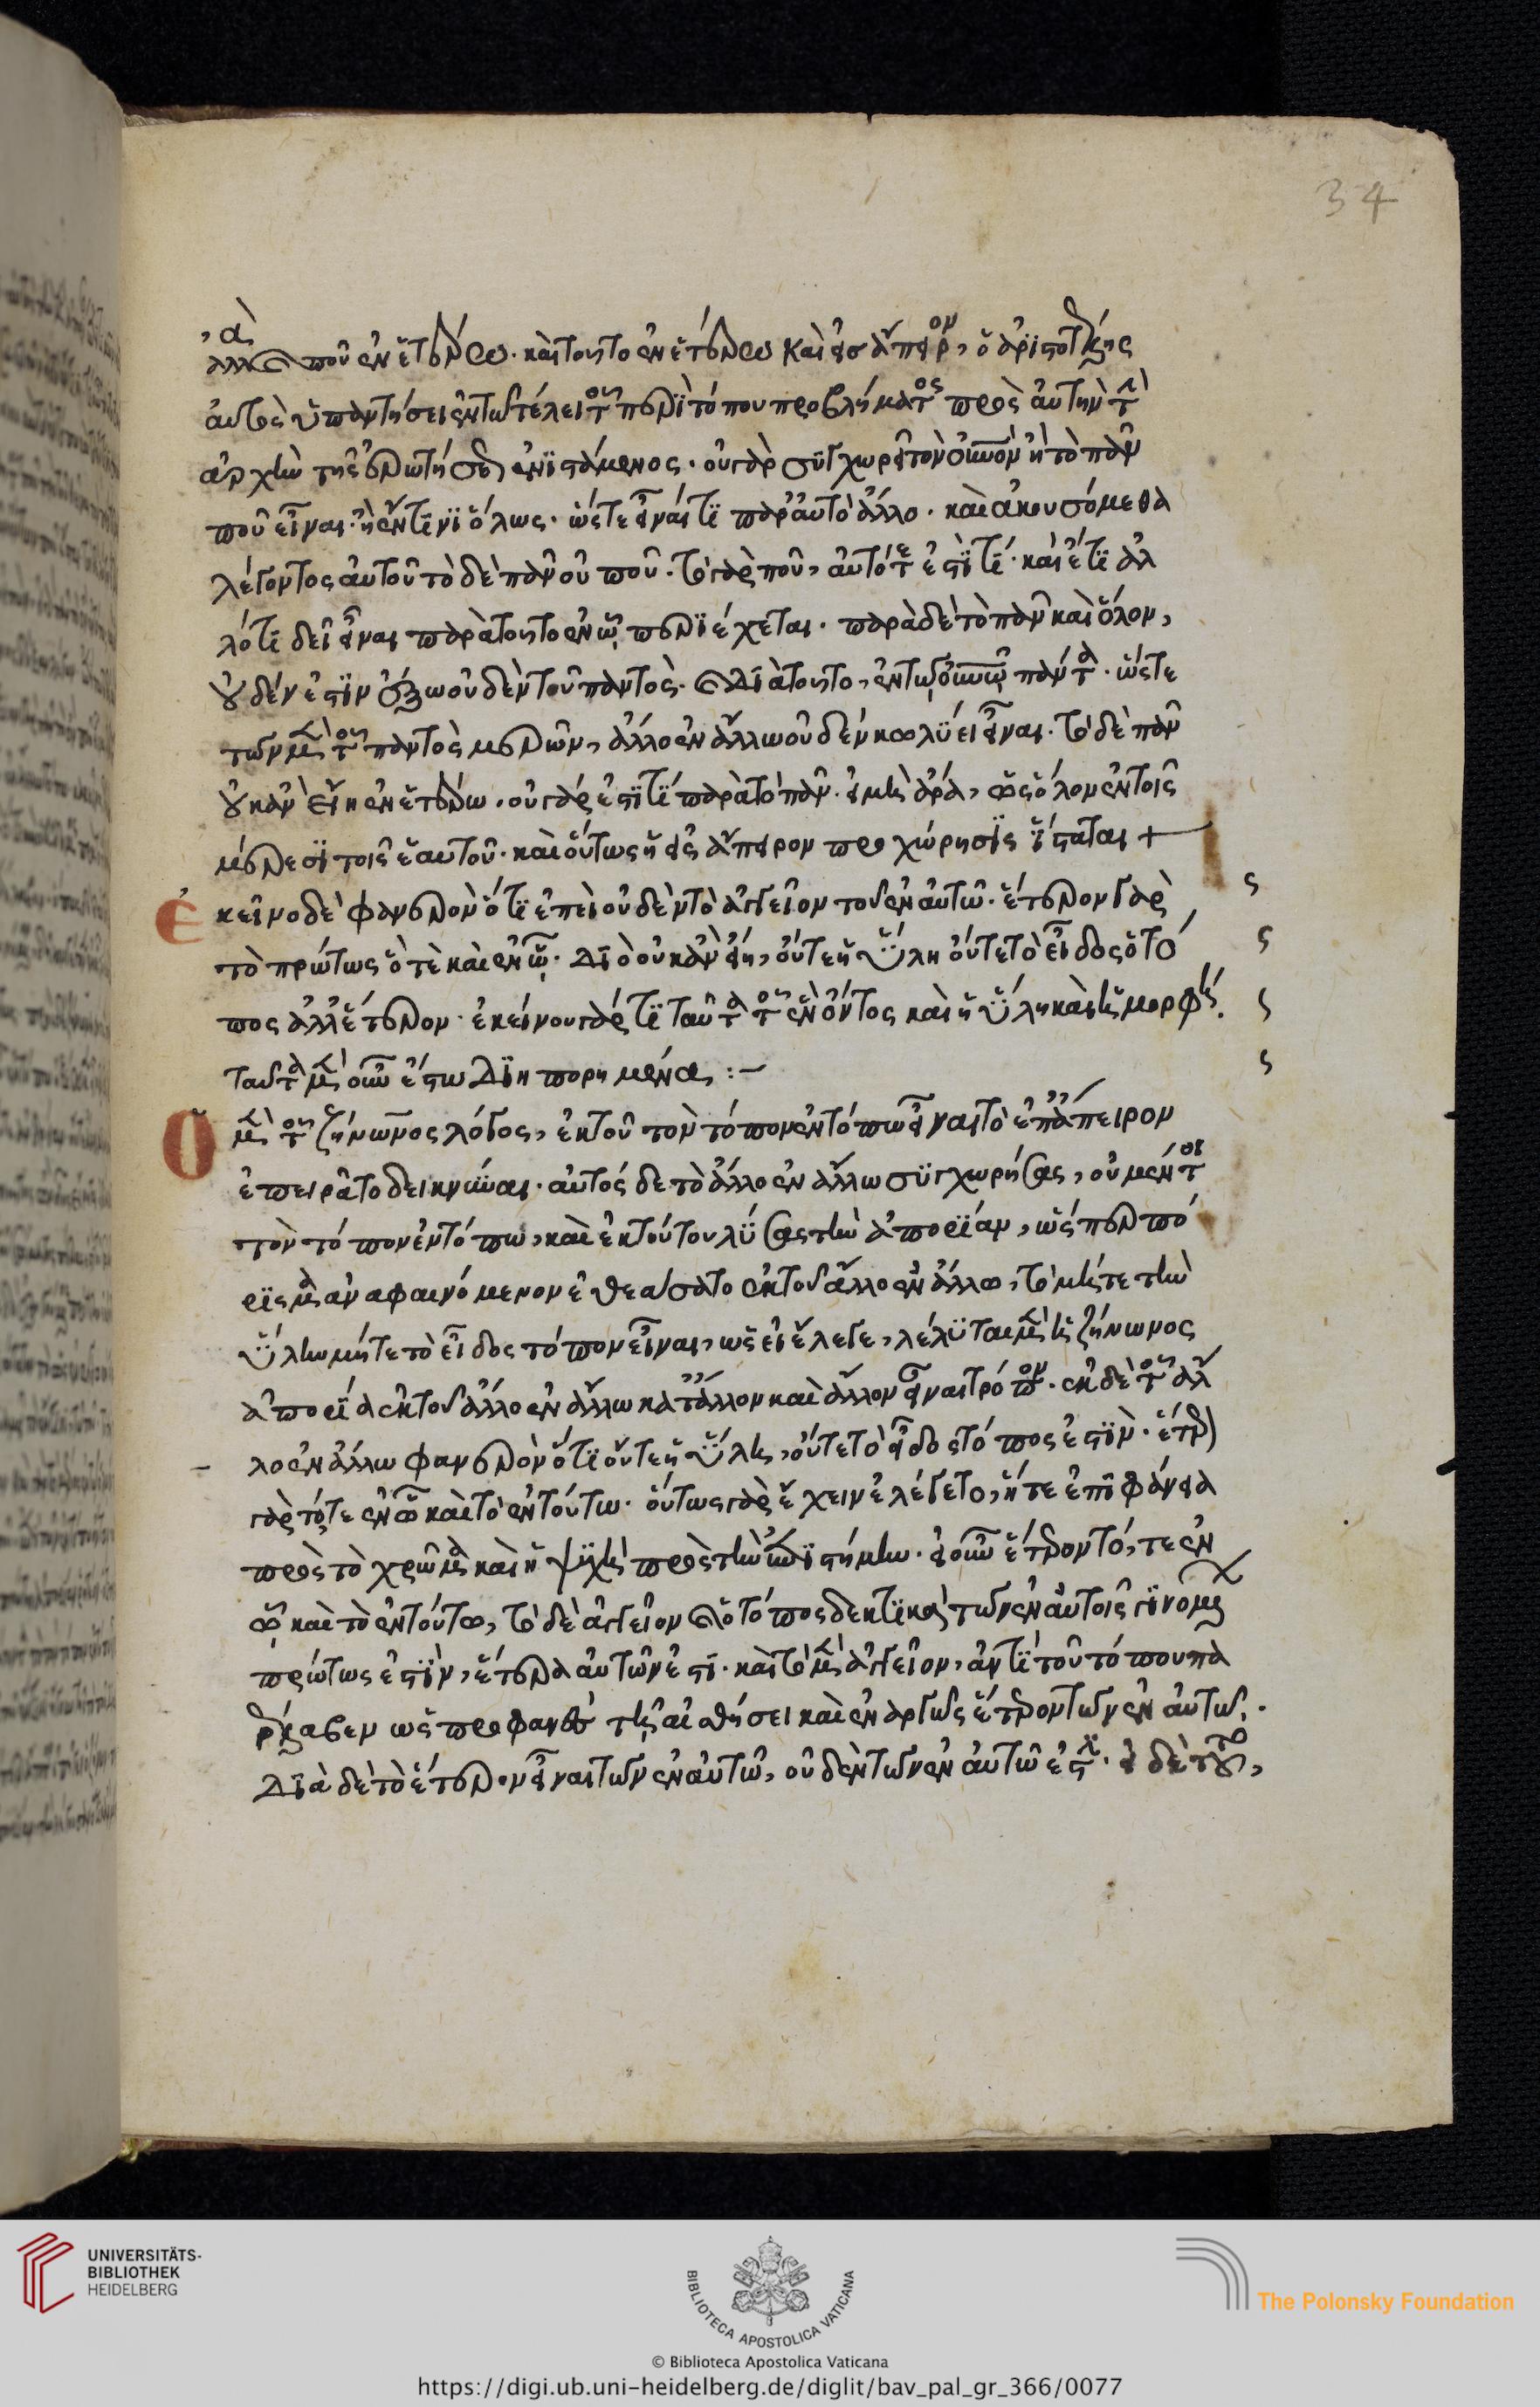 34
ἀλλά που ἐν ἑτέρω. καὶ τοῦτο ἐν ἑτέρω καὶ εἰς ἄπειρον, ὁ ἀριστοτέλης
αὐτὸς ὑπαντήσει ἐν τῶ τέλει τοῦ περὶ τόπου προβλήματος πρὸς αὐτὴν τὴν
ἀρχὴν τῆς ἐρωτήσεως ἐνιστάμενος. οὐ γὰρ συγχωρεῖ τὸν οὐνον ἢ τὸ πᾶν
ποῦ εἶναι. ἢ ἔν τινι ὅλως. ὥστε εἶναί τι παρ' αὐτὸ ἄλλο. καὶ ἀκουσόμεθα
λέγοντος αὐτοῦ τὸ δὲ πᾶν οὔ που. τὸ γάρ που, αὐτό τέ ἐστί τι. καὶ ἔτι ἄλ
λό τι δεῖ εἶναι παρὰ τοῦτο ἐν ὧ, περιέχεται. παρὰ δὲ τὸ πᾶν καὶ ὅλον,
οὐδέν ἐστιν ἔξω οὐδὲν τοῦ παντὸς. καὶ διὰ τοῦτο, ἐν τῶ οὐνω πάντα. ὥστε
τῶν μὲν τοῦ παντὸς μερῶν, ἄλλο ἐν ἄλλω οὐδὲν κωλύει εἶναι. τὸ δὲ πᾶν
οὐκ ἂν εἴη ἐν ἑτέρω. οὐ γάρ ἐστί τι παρὰ τὸ πᾶν. εἰ μὴ ἄρα, ὡς ὅλον ἐν τοῖς
μέρεσι τοῖς ἑαυτοῦ. καὶ οὕτως ἡ εἰς ἄπειρον προχώρησις ἵσταται +
ἐκεῖνο δὲ φανερὸν ὅτι ἐπεὶ οὐδὲν τὸ ἀγγεῖον τοῦ ἐν αὐτῶ. ἕτερον γὰρ
τὸ πρώτως ὅ τε καὶ ἐν ὧ. διὸ οὐκ ἂν εἴη, οὔτε ἡ ὕλη οὔτε τὸ εἶδος ὁ τό
πος ἀλλ' ἕτερον. ἐκείνου γάρ τι ταῦτα τοῦ ἐνόντος καὶ ἡ ὕλη καὶ ἡ μορφή.
ταῦτα μὲν οὖν ἔστω διηπορημένα :-
Ὁ μὲν τοῦ ζήνωνος λόγος, ἐκ τοῦ τὸν τόπον ἐν τόπω εἶναι τὸ ἐπ' ἄπειρον
ἐπειρᾶτο δεικνύναι. αὐτός δε τὸ ἄλλο ἐν ἄλλω συγχωρήσας, οὐ μέντοι
τὸν τόπον ἐν τόπω, καὶ ἐκ τούτου λύσας τὴν ἀπορίαν, ὥσπερ πό
ρισμα ἀναφαινόμενον ἐθεάσατο ἐκ τοῦ ἄλλο ἐν ἄλλω, τὸ μήτε τὴν
ὕλην μήτε τὸ εἶδος τόπον εἶναι, ὡς εἰ ἔλεγε, λέλυται μὲν ἡ ζήνωνος
ἀπορία ἐκ τοῦ ἄλλο ἐν ἄλλω κατ' ἄλλον καὶ ἄλλον εἶναι τρόπον. ἐκ δὲ τοῦ ἄλ
λο ἐν ἄλλω φανερὸν ὅτι οὔτε ἡ ὕλη, οὔτε τὸ εἶδος τόπος ἐστὶν. ἕτερον
γὰρ τό, τε ἐν ὧ καὶ τὸ ἐν τούτω. οὕτως γὰρ ἔχειν ἐλέγετο, ἥ τε ἐπιφάνεια
πρὸς τὸ χρῶμα καὶ ἡ ψυχὴ πρὸς τὴν ἐπιστήμην. εἰ οὖν ἕτερον τό, τε ἐν
ὧ καὶ τὸ ἐν τούτω, τὸ δὲ ἀγγεῖον καὶ ὁ τόπος δεκτικὰ τῶν ἐν αὐτοῖς γινομένων
πρώτως ἐστὶν, ἕτερα αὐτῶν ἐστι. καὶ τὸ μὲν ἀγγεῖον, ἀντὶ τοῦ τόπου πα
ρέλαβεν ὡς προφανὲς τῆ αἰσθήσει καὶ ἐναργῶς ἕτερον τῶν ἐν αὐτῶ.
διὰ δὲ τὸ ἕτερον εἶναι τῶν ἐν αὐτῶ, οὐδὲν τῶν ἐν αὐτῶ ἐστι. εἰ δὲ τοῦτο,
UNIVERSITÄTS-
BIBLIOTHEK
HEIDELBERG
BIBLIOTECA APOSTOLICA VATICANA
The Polonsky Foundation
© Biblioteca Apostolica Vaticana
https://digi.ub.uni-heidelberg.de/diglit/bav_pal_gr_366/0077